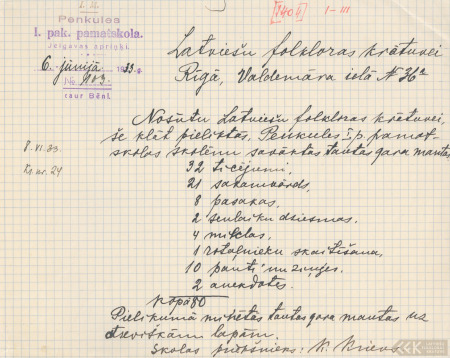 [1404] I-III
Penkules
I. pak. pamatskola.
Jelgavas apriņķī.
6. jūnijā 1933. g.
№ 903.
caur Bēni.
Latviešu folkloras krātuvei
Rīgā, Valdemāra ielā № 36a
8. VI. 33.
Kr. nr. 24
Nosūtu Latviešu folkloras krātuvei,
še klāt pieliktas, Penkules I p. pamat
skolas skolēnu savāktas tautas gara mantas
32 ticējumi,
21 sakāmvārds,
8 pasakas,
2 senlaiku dziesmas,
4 mīklas,
1 rotaļnieku skaitīšana,
10 panti un ziņģes,
2 anekdotes.
Kopā 80
Pielikumā minētās tautas gara mantas uz
atsevišķām lapām.
Skolas pārzinis: K.